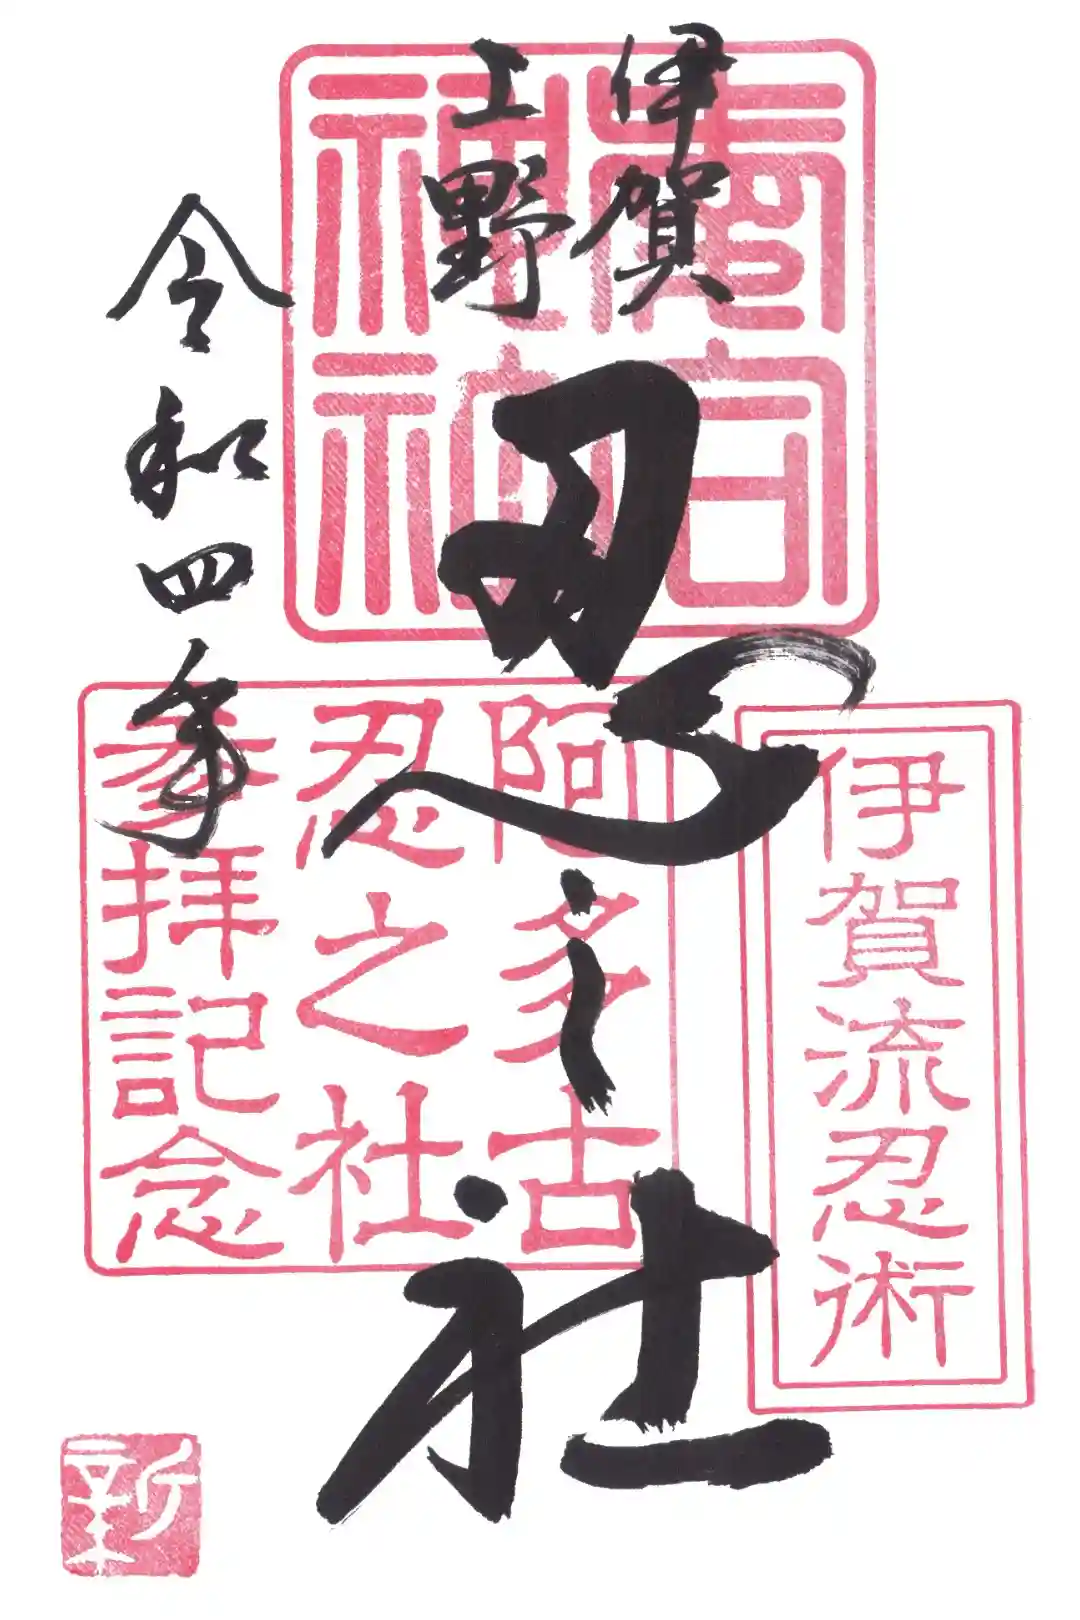 伊賀
上野
忍之社
令和四年
伊賀流忍術
阿多古
忍之社
参拝記念
新